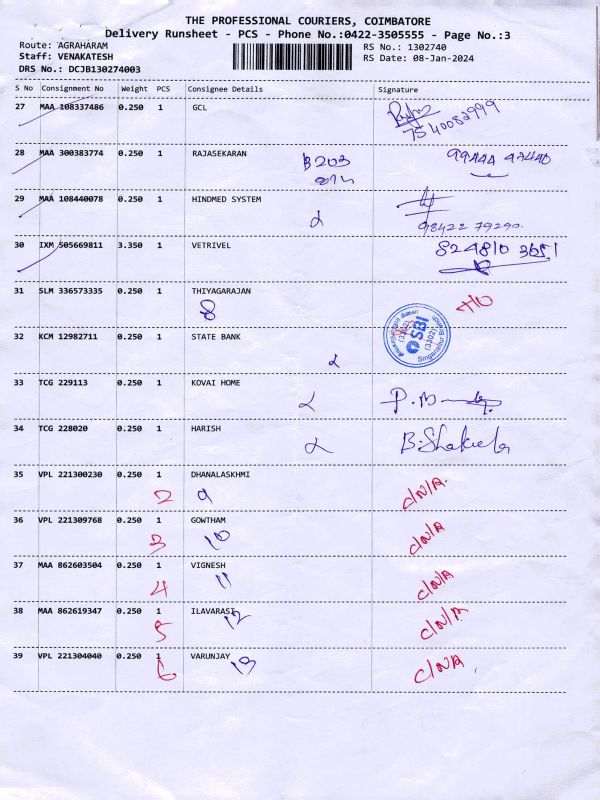 THE PROFESSIONAL COURIERS, COIMBATORE
Delivery Runsheet - PCS - Phone No.:0422-3505555 - Page No.:3
Route: AGRAHARAM RS No.: 1302740
Staff: VENAKATESH RS Date: 08-Jan-2024
DRS No.: DCJB130274003
S No Consignment No Weight PCS Consignee Details Signature
27 MAA 108337486 0.250 1 GCL
7540082999
28 MAA 300383774 0.250 1 RAJASEKARAN B203
29 MAA 108440078 0.250 1 HINDMED SYSTEM
98422 79290
30 IXM 505669811 3.350 1 VETRIVEL 824810 3651
31 SLM 336573335 0.250 1 THIYAGARAJAN
8
32 KCM 12982711 0.250 1 STATE BANK SBI (3302)
33 TCG 229113 0.250 1 KOVAI HOME
34 TCG 228020 0.250 1 HARISH
35 VPL 221300230 0.250 1 DHANALASKHMI
2 9 C/N/A
36 VPL 221309768 0.250 1 GOWTHAM
3 10 C/N/A
37 MAA 862603504 0.250 1 VIGNESH
4 11 C/N/A
38 MAA 862619347 0.250 1 ILAVARASI
5 12 C/N/A
39 VPL 221304040 0.250 1 VARUNJAY
6 13 C/N/A